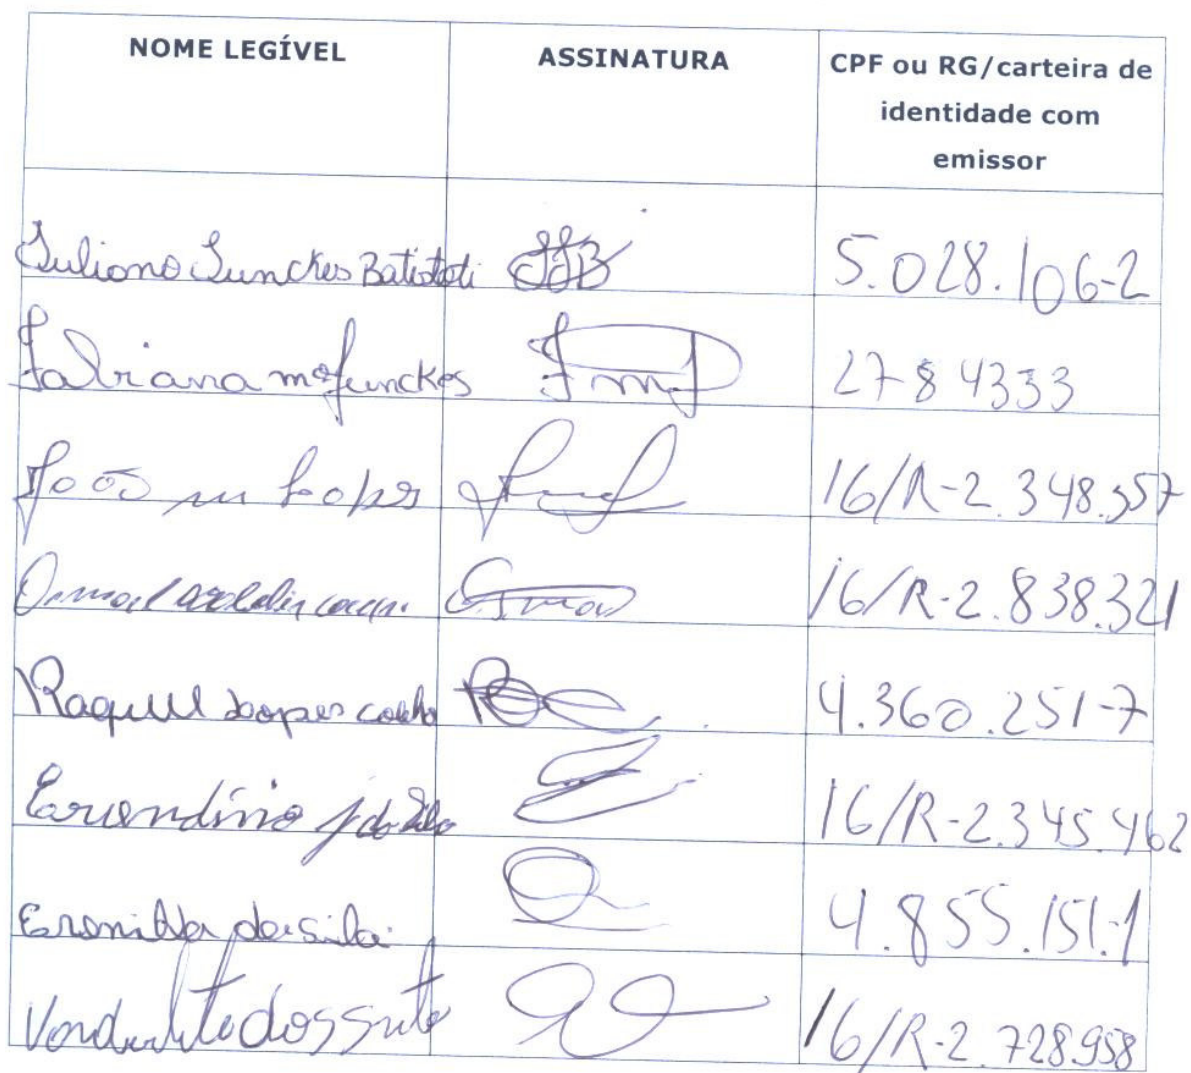 NOME LEGÍVEL ASSINATURA CPF ou RG/carteira de
identidade com
emissor
Juliano Junckes Batistoti JJB 5.028.106-2
Fabiana m Junckes FmJ 2784333
João m Lopes 16/R-2.348.557
16/R-2.838.321
Raquel Lopes coelho 4.360.251-7
Erondino j da Silva 16/R-2.345.462
Eronilda da silva 4.855.151-1
dos 16/R-2.728.958